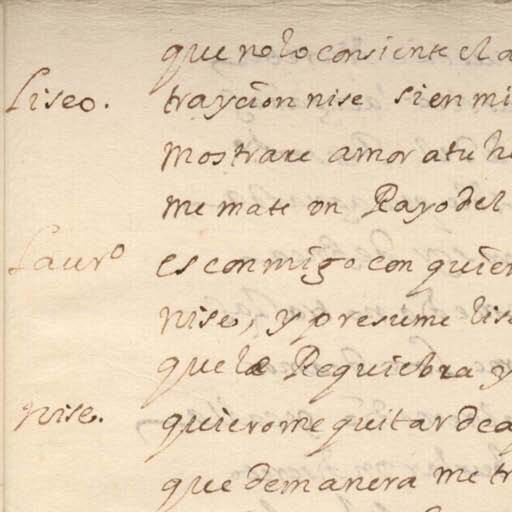 que no lo consiente el a
Liseo. trayçion nise si en mi
mostrare amor a tu he
me mate vn Rayo del
Laurº es conmigo con quien
nise, y presume lise
que le Requiebra y
nise. quierome quitar de a
que de manera me tr